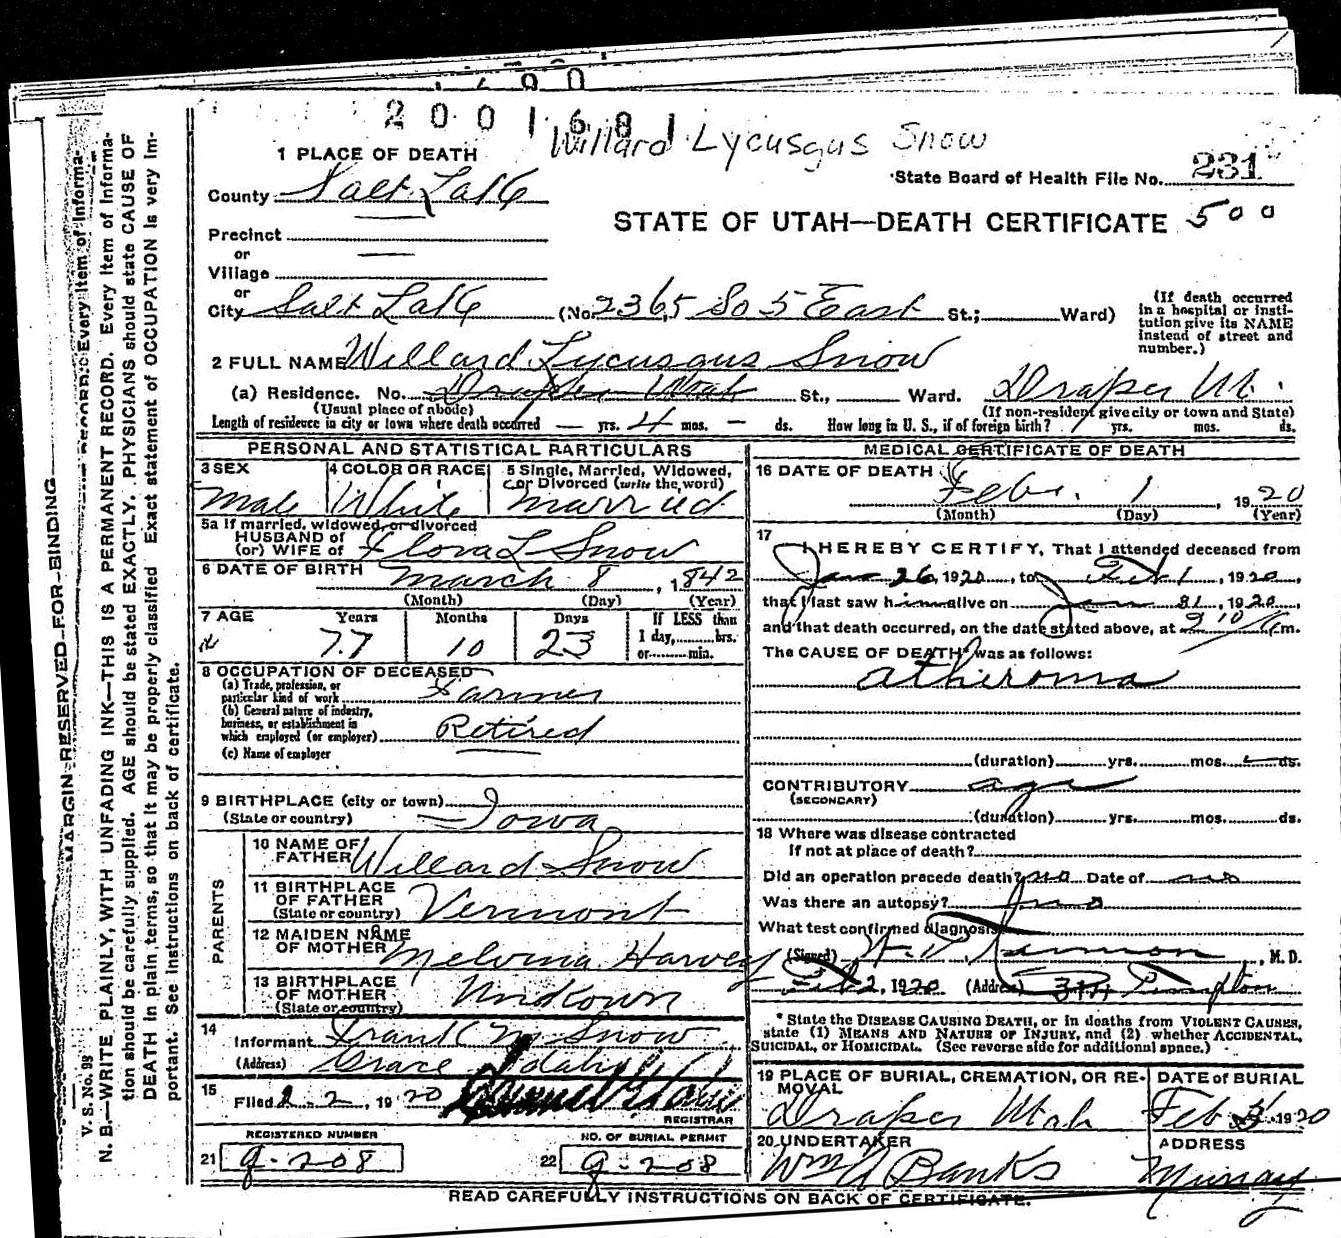 2001681
Willard Lycusgus Snow
1 PLACE OF DEATH
County Salt Lake
State Board of Health File No. 231
STATE OF UTAH—DEATH CERTIFICATE 500
Precinct
or
Village
or
City Salt Lake (No. 2365 So 5 East St.; Ward)
(If death occurred in a hospital or institution give its NAME instead of street and number.)
2 FULL NAME Willard Lycusgus Snow
(a) Residence. No. Draper Utah St., Ward. Draper Ut.
(Usual place of abode) (If non-resident give city or town and State)
Length of residence in city or town where death occurred — yrs. 4 mos. — ds. How long in U. S., if of foreign birth? yrs. mos. ds.
PERSONAL AND STATISTICAL PARTICULARS
3 SEX Male
4 COLOR OR RACE White
5 Single, Married, Widowed, or Divorced (write the word) Married
5a If married, widowed, or divorced
HUSBAND of
(or) WIFE of Flora L Snow
6 DATE OF BIRTH March 8, 1842
(Month) (Day) (Year)
7 AGE Years 77 Months 10 Days 23 If LESS than 1 day, hrs. or min.
8 OCCUPATION OF DECEASED
(a) Trade, profession, or particular kind of work Farmer
(b) General nature of industry, business, or establishment in which employed (or employer) Retired
(c) Name of employer
9 BIRTHPLACE (city or town)
(State or country) Iowa
PARENTS
10 NAME OF FATHER Willard Snow
11 BIRTHPLACE OF FATHER (State or country) Vermont
12 MAIDEN NAME OF MOTHER Melvina Harvey
13 BIRTHPLACE OF MOTHER (State or country) Unkown
14 Informant Frank M Snow
(Address) Grace Idaho
15 Filed 2-2, 1920
REGISTRAR
REGISTERED NUMBER
21 g-208
NO. OF BURIAL PERMIT
22 g-208
MEDICAL CERTIFICATE OF DEATH
16 DATE OF DEATH Feb. 1 1920
(Month) (Day) (Year)
17 I HEREBY CERTIFY, That I attended deceased from
Jan 26, 1920, to Feb 1, 1920,
that I last saw him alive on Jan 31, 1920
and that death occurred, on the date stated above, at 9 10 m.
The CAUSE OF DEATH* was as follows:
atheroma
(duration) yrs. mos. ds.
CONTRIBUTORY age
(SECONDARY)
(duration) yrs. mos. ds.
18 Where was disease contracted
If not at place of death?
Did an operation precede death? no Date of no
Was there an autopsy? no
What test confirmed diagnosis
(Signed) M. D.
Feb 2, 1920 (Address)
* State the DISEASE CAUSING DEATH, or in deaths from VIOLENT CAUSES, state (1) MEANS AND NATURE OF INJURY, and (2) whether ACCIDENTAL, SUICIDAL, or HOMICIDAL. (See reverse side for additional space.)
19 PLACE OF BURIAL, CREMATION, OR REMOVAL Draper Utah
DATE of BURIAL Feb 1920
20 UNDERTAKER Wm Banks
ADDRESS Murray
READ CAREFULLY INSTRUCTIONS ON BACK OF CERTIFICATE.
MARGIN RESERVED FOR BINDING
V. S. No. 98
N. B.—WRITE PLAINLY, WITH UNFADING INK—THIS IS A PERMANENT RECORD. Every item of information should be carefully supplied. AGE should be stated EXACTLY. PHYSICIANS should state CAUSE OF DEATH in plain terms, so that it may be properly classified. Exact statement of OCCUPATION is very important. See instructions on back of certificate.